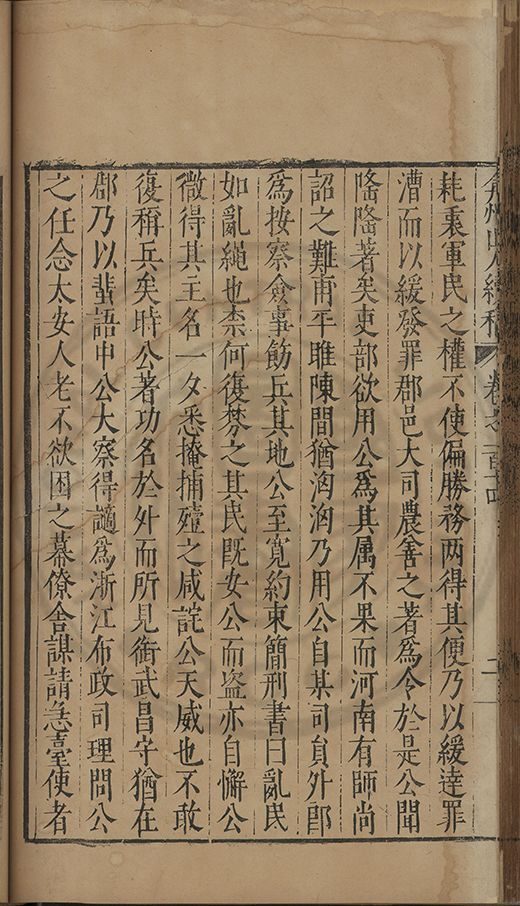 弇州山人續稿 卷之一百十四 二
耗衰軍民之權不使偏勝務两得其便乃以緩逹罪
漕而以緩發罪郡邑大司農善之著為令於是公聞
隆隆著矣吏部欲用公為其属不果而河南有師尚
詔之難甫平睢陳間猶洶洶乃用公自某司貟外郎
為按察僉事飭兵其地公至寛約束簡刑書曰亂民
如亂繩也柰何復棼之其民既安公而盗亦自懈公
微得其主名一夕悉掩捕殪之咸詫公天威也不敢
復稱兵矣時公著功名於外而所見銜武昌守猶在
郡乃以蜚語中公大察得謫為浙江布政司理問公
之任念太安人老不欲困之幕僚舍謀請急臺使者